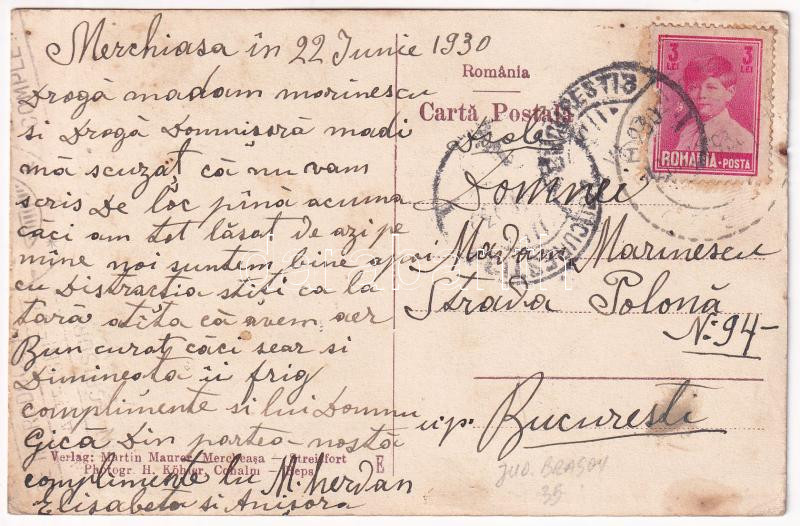 Merchiasa în 22 Iunie 1930
Drogă madam morinescu
si Drogă Domnisoră madi
mă scuzaț că nu vam
scris De loc pînă acuma
căci am tot lăsat de azi pe
mine noi suntem bine apoi
cu Distracția stiți ca la
țară atîta că avem aer
Bun curat căci sear si
Dimineata îi frig
complimente si lui Domnu
Gică Din partea nostă
complimente lu M. herdan
Elisabeta si Anisora
România
Carta Postală
Domnei
Madam Marinescu
Strada Polonă
No 94-
Bucuresti
3 LEI 3 LEI
ROMANIA-POSTA
BUCURESTI
Verlag: Martin Maurer, Mercheasa - Streitfort
Photogr. H. Köhler, Cohalm - Reps
E
JUD. BRAȘOV
35